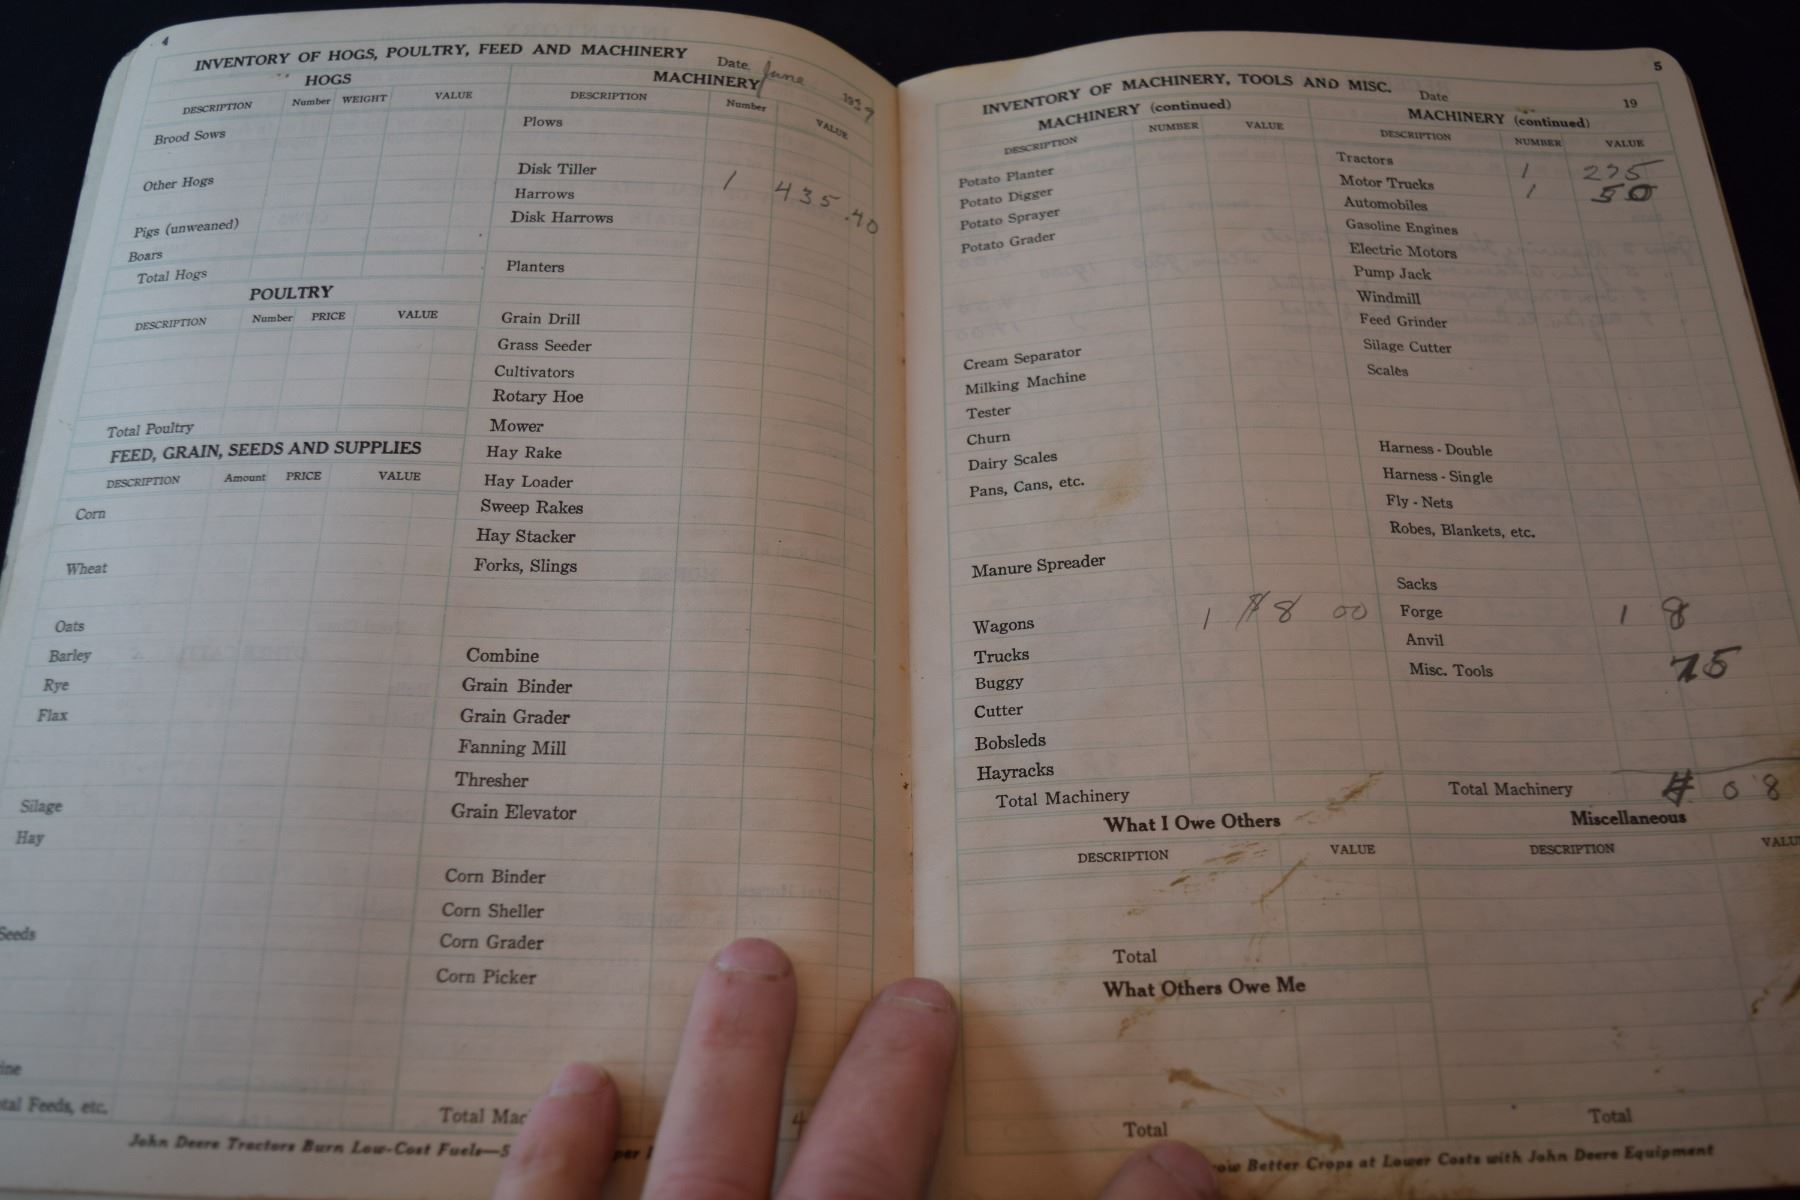 4
INVENTORY OF HOGS, POULTRY, FEED AND MACHINERY Date June 1939
HOGS
DESCRIPTION Number WEIGHT VALUE
Brood Sows
Other Hogs
Pigs (unweaned)
Boars
Total Hogs
POULTRY
DESCRIPTION Number PRICE VALUE
Total Poultry
FEED, GRAIN, SEEDS AND SUPPLIES
DESCRIPTION Amount PRICE VALUE
Corn
Wheat
Oats
Barley
Rye
Flax
Silage
Hay
Seeds
etc.
Feeds, etc.
MACHINERY
DESCRIPTION Number VALUE
Plows
Disk Tiller 1 435.40
Harrows
Disk Harrows
Planters
Grain Drill
Grass Seeder
Cultivators
Rotary Hoe
Mower
Hay Rake
Hay Loader
Sweep Rakes
Hay Stacker
Forks, Slings
Combine
Grain Binder
Grain Grader
Fanning Mill
Thresher
Grain Elevator
Corn Binder
Corn Sheller
Corn Grader
Corn Picker
Total 4
John Deere Tractors Burn Low-Cost Fuels—
5
INVENTORY OF MACHINERY, TOOLS AND MISC. Date 19
MACHINERY (continued)
DESCRIPTION NUMBER VALUE
Potato Planter
Potato Digger
Potato Sprayer
Potato Grader
Cream Separator
Milking Machine
Tester
Churn
Dairy Scales
Pans, Cans, etc.
Manure Spreader
Wagons 1 8 00
Trucks
Buggy
Cutter
Bobsleds
Hayracks
Total Machinery
What I Owe Others
DESCRIPTION VALUE
Total
What Others Owe Me
Total
MACHINERY (continued)
DESCRIPTION NUMBER VALUE
Tractors 1 275
Motor Trucks 1 50
Automobiles
Gasoline Engines
Electric Motors
Pump Jack
Windmill
Feed Grinder
Silage Cutter
Scales
Harness - Double
Harness - Single
Fly - Nets
Robes, Blankets, etc.
Sacks
Forge 1 8
Anvil
Misc. Tools 75
Total Machinery 408
Miscellaneous
DESCRIPTION VALU
Total
Better Crops at Lower Costs with John Deere Equipment